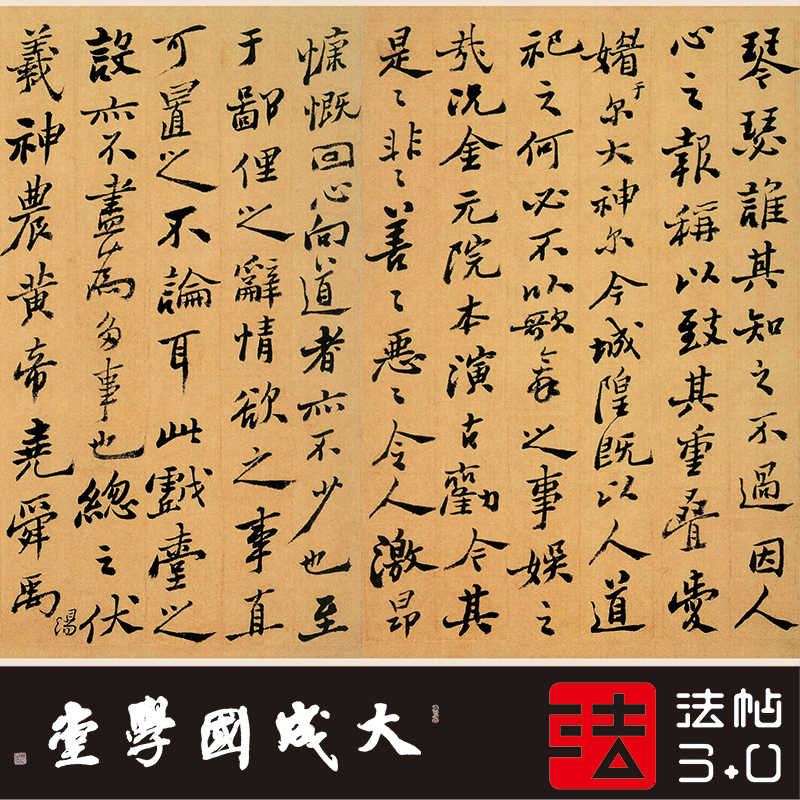 琴瑟誰其知之不過因人
心之報稱以致其重疊愛
媚于尔大神尔今城隍既以人道
祀之何必不以歌舞之事娛之
哉况金元院本演古勸今其
是〻非〻善〻惡〻令人激昂
慷慨回心向道者亦不少也至
于鄙俚之辭情欲之事直
可置之不論耳此戲臺之
設亦不盡為多事也總之伏
羲神農黃帝堯舜禹湯
大成國學堂
法
法帖
3.0